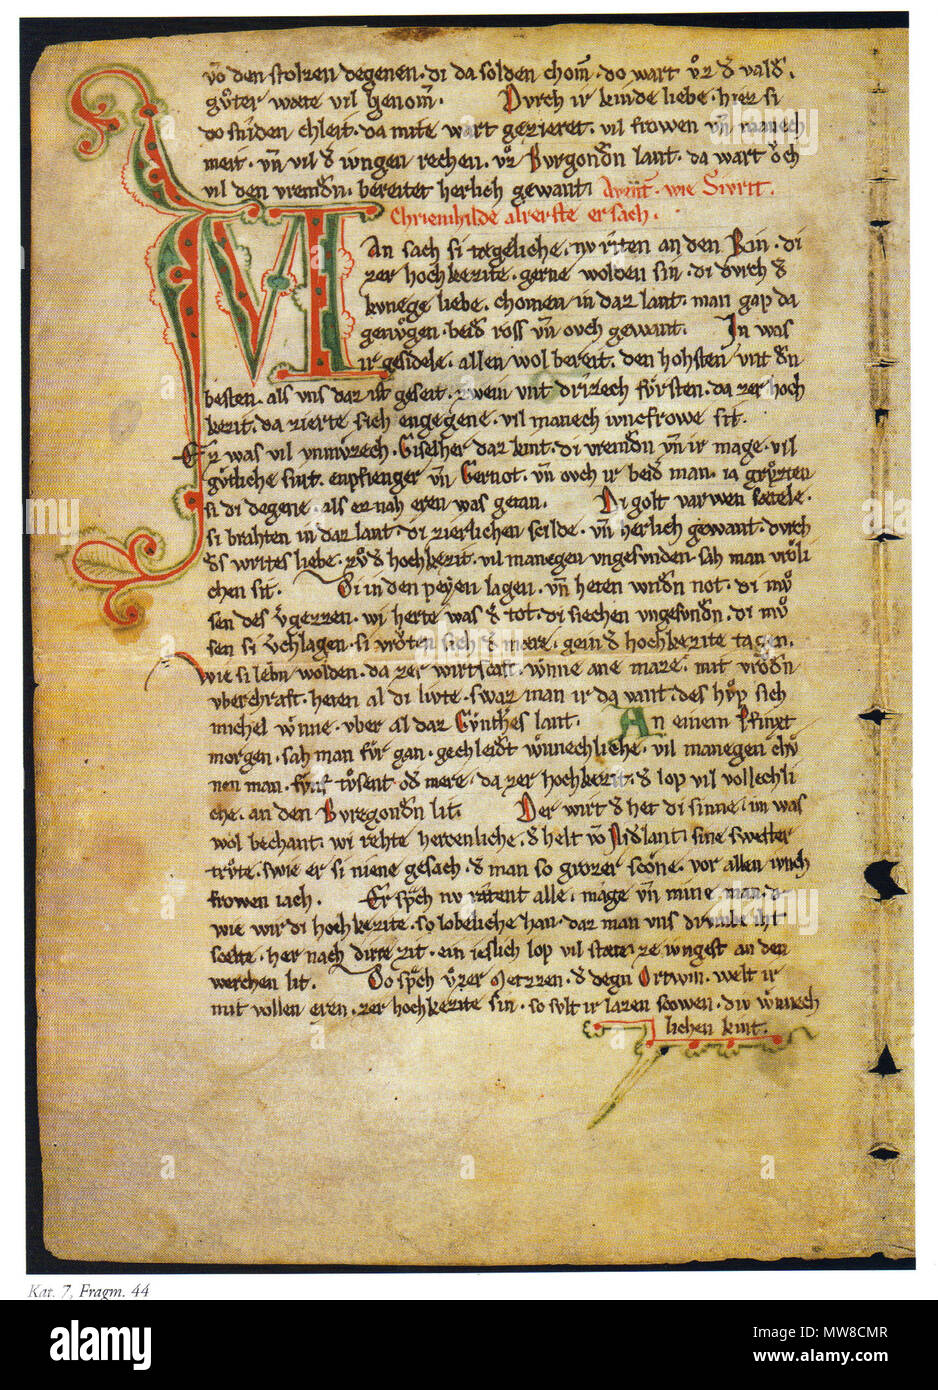 vō den stolzen degenen · di da solden chom̄ · do wart vͦz d̕ valdˢ ·
gvͦter wæte vil genom̄ · Dvrch ir kinde liebe · hiez si
do sniden chleit · da mite wart gezieret · vil frowen vn̄ manech
meit · vn̄ vil d̕ ivngen rechen · vͦz Bvrgondˢn lant · da wart ovch
vil den vremdˢn · bereitet herlich gewant · Aventˢ · wie Sivrit ·
Chriemhilde alrerste ersach ·
MAn sach si tægeliche · nv riten an den Rin · di
zer hochkezite · gerne wolden sin · di dvrch d̕
kvnege liebe · chomen in daz lant · man gap da
genvͦgen · beidˢ ross vn̄ ovch gewant · In was
ir gesidele · allen wol bereit · den hohsten vnt dˢn
besten · als vns daz ist geseit · zwein vnt drizech fvͤrsten · da zer hoch
kezit · da zierte sich engegene · vil manech ivncfrowe sit ·
Ez was vil vnmvͤzech · Giselher daz kint · di vremdˢn vn̄ ir mage · vil
gvͤtliche sint · enpfienger vn̄ Gernot · vn̄ ovch ir beidˢ man · ia grvͦzten
si di degene · als ez nah eren was getan · Di golt varwen sætele ·
si brahten in daz lant · di zierlichen scilde · vn̄ herlich gewant · dvrch
dˢs wirtes liebe · zvͦ d̕ hochkezit · vil manegen vngesvnden · sah man vrͦoli
chen sit · Di in den petten lagen · vn̄ heten wndˢn not · di mvͦ
sen des v̕gezzen · wi herte was d̕ tot · di siechen vngesvndˢn · di mvͦ
sen si v̕chlagen · si vroͮten sich d̕ mære · gein d̕ hochkezite tagen ·
wie si lebn wolden · da zer wirtscaft · wͦnne ane maze · mit vroͮdˢn
vberchraft · heten al di livte · swaz man ir da vant · des hvͦp sich
michel wͦnne · vber al daz Gvͤnthˢes lant · An einem Pfinxt
morgen · sah man fvͤr gan · gechleidˢt wͦnnechliche · vil manegen chvͤ
nen man · fvͤnf tvͦsent odˢ mere · da zer hochkezit · d̕ lop vil vollechli
che · an den Bvrgondˢn lit · Der wirt d̕ het di sinne · im was
wol bechant · wi rehte herzenliche · d̕ helt vō Nidˢlant · sine swester
trvͦte · swie er si niene gesach · d̕ man so grozer scoͤne · vor allen ivnch
frowen iach · Er sp̄ch nv ratent alle · mage vn̄ mine man ·
wie wir di hochkezite · so lobeliche han · daz man vns darvmbe iht
scelte · her nach dirre zit · ein ieslich lop vil stæte · ze ivngest an den
werchen lit · Do sp̄ch vͦzer Metzzen · d̕ degn Ortwin · welt ir
mit vollen eren · zer hochkezite sin · so svlt ir lazen scowen · div wͦnnech
lichen kint ·
Kat. 7, Fragm. 44
alamy
Image ID: MW8CMR
www.alamy.com